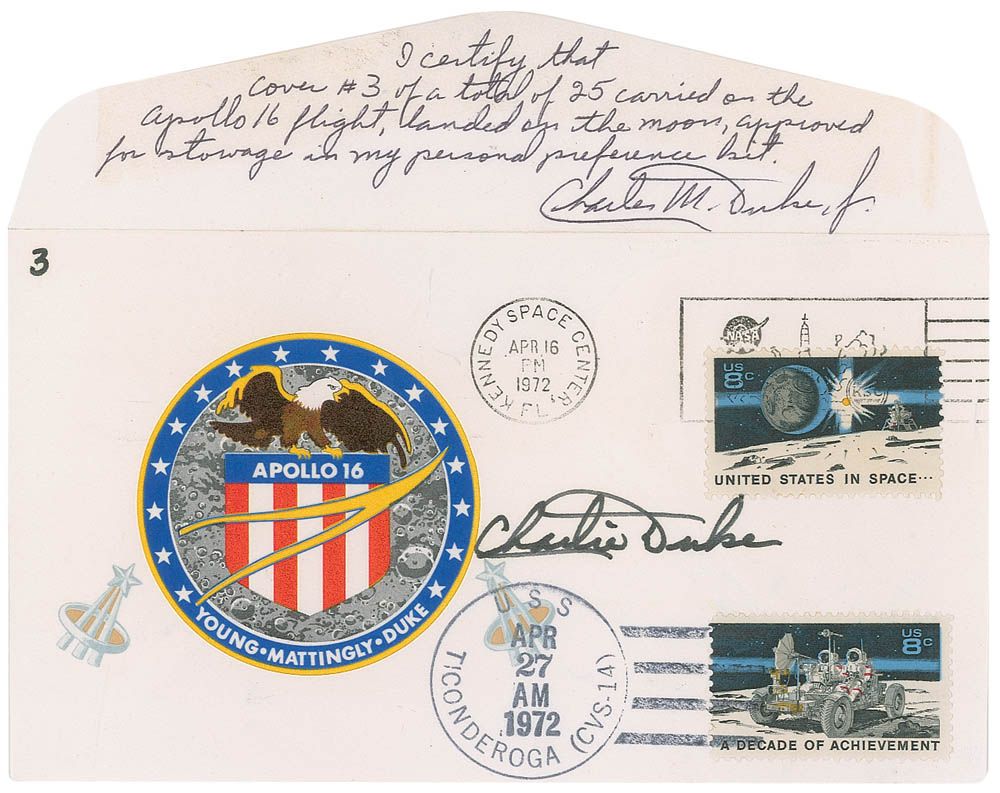 I certify that
cover #3 of a total of 25 carried on the
Apollo 16 flight, landed on the moon, approved
for stowage in my personal preference kit.
Charles M. Duke, Jr.
3
KENNEDY SPACE CENTER, FL
APR 16
PM
1972
NASA
KSC
US
8c
UNITED STATES IN SPACE...
APOLLO 16
YOUNG•MATTINGLY•DUKE
Charlie Duke
USS TICONDEROGA (CVS-14)
APR
27
AM
1972
US
8c
A DECADE OF ACHIEVEMENT